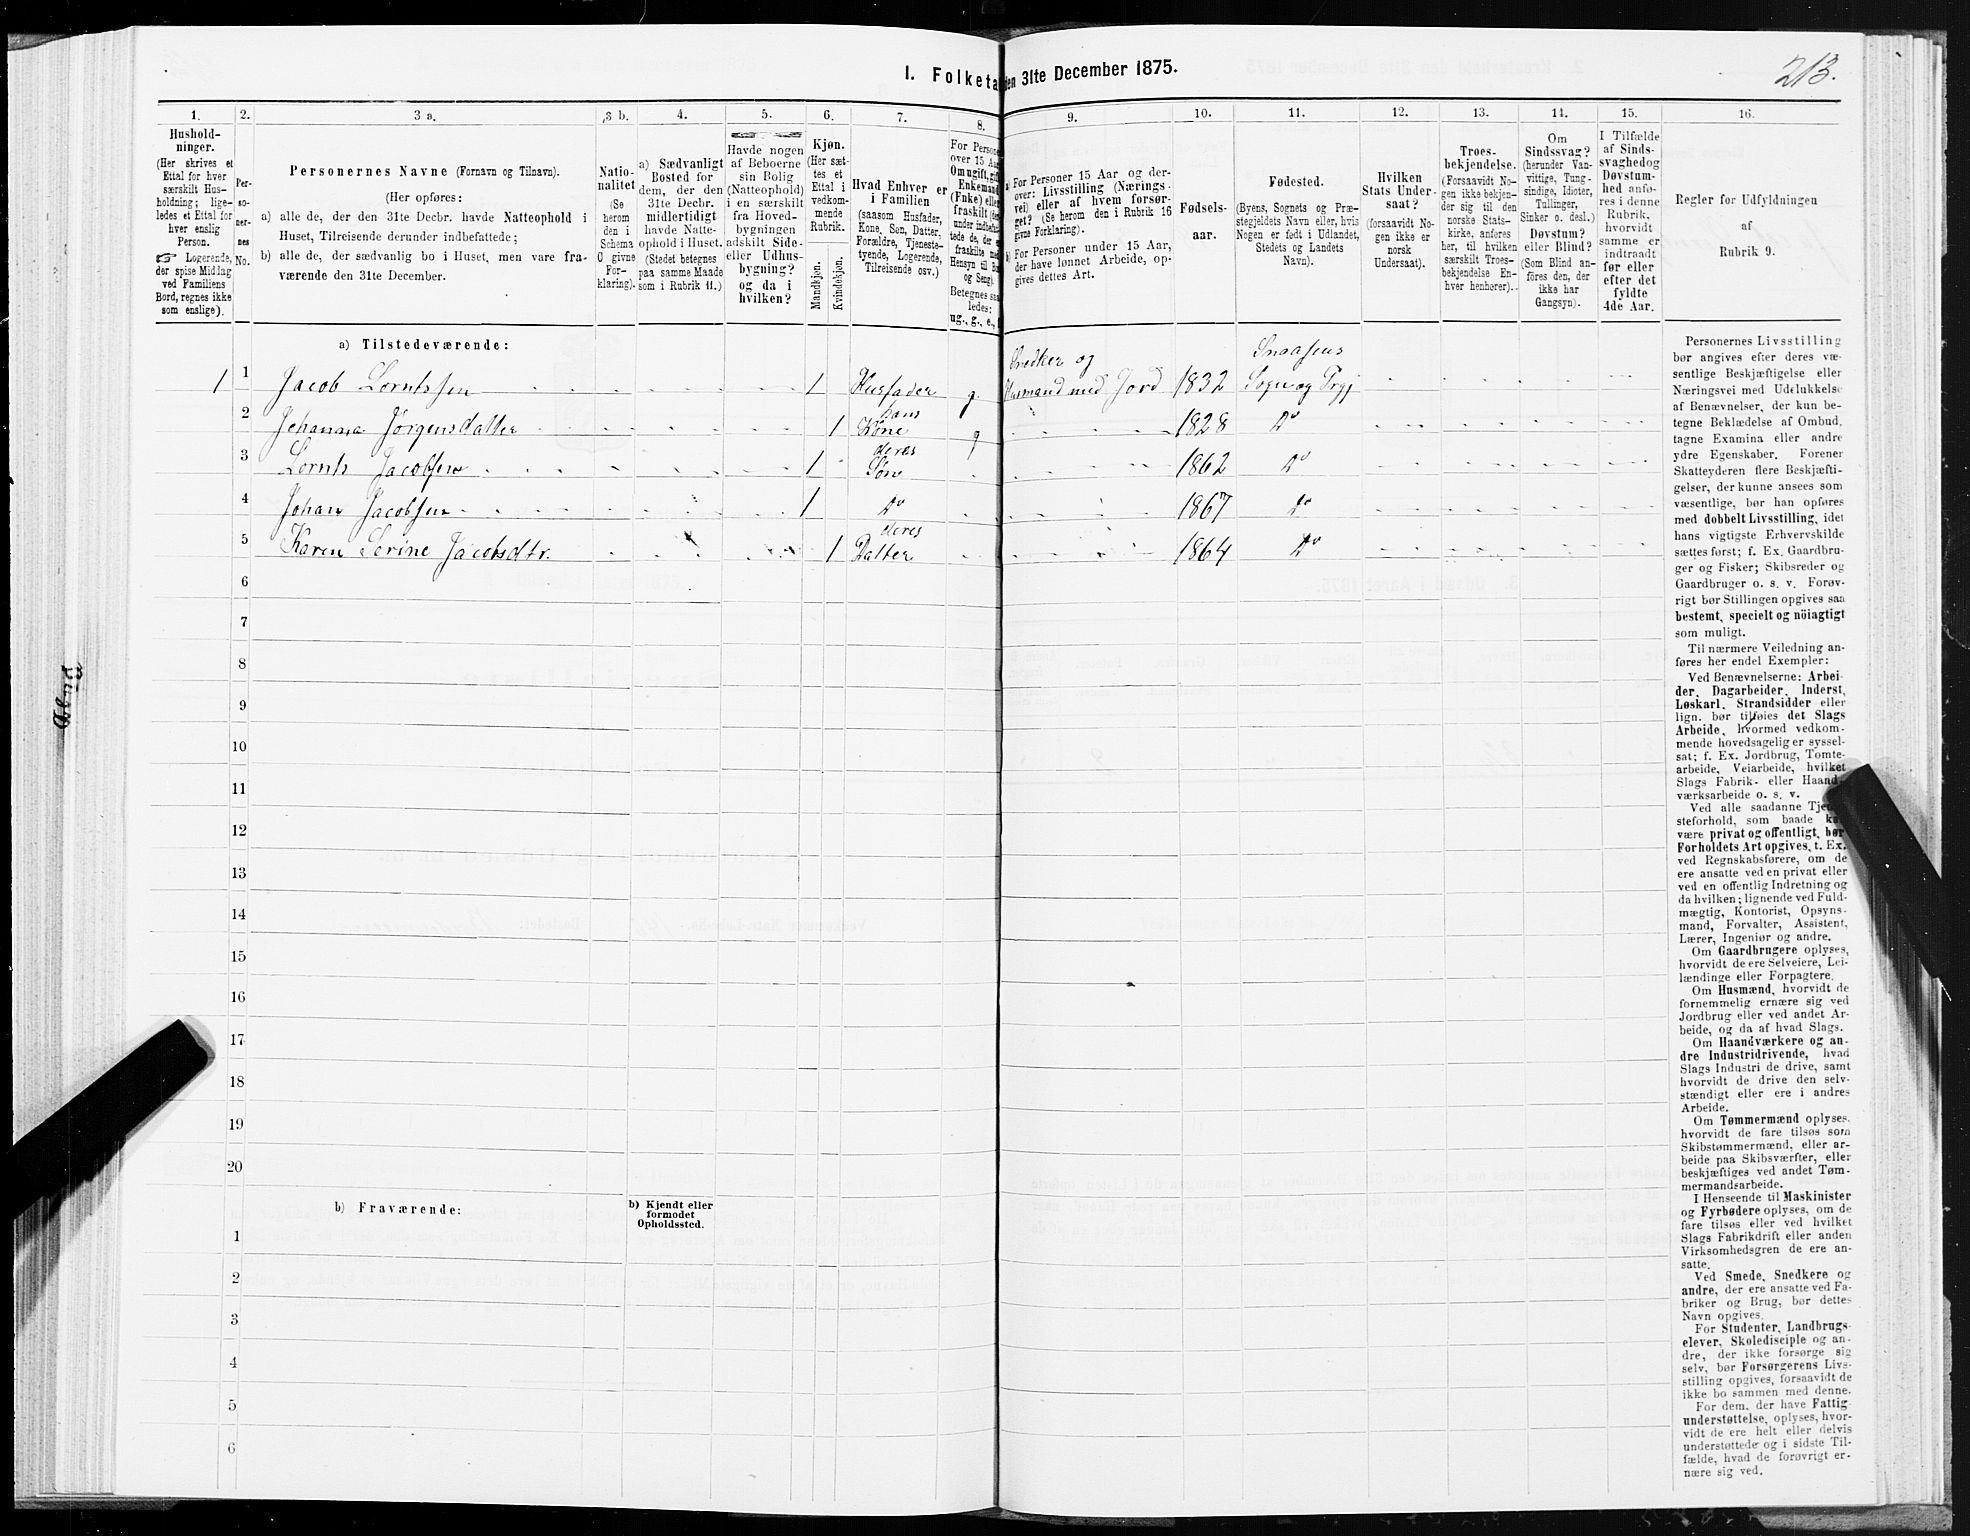 213.
I. Folketa
den 31te December 1875.
1.
2.
3 a.
3 b.
4.
5.
6.
7.
8.
9.
10.
11.
12.
13.
14.
15.
16.
Hushold-
ninger.
(Her skrives et
Ettal for hver
særskilt Hus-
holdning; lige-
ledes et Ettal for
hver enslig
Person.
☞ Logerende,
der spise Middag
ved Familiens
Bord, regnes ikke
som enslige).
Per-
so-
ner-
nes
No.
Personernes Navne (Fornavn og Tilnavn).
(Her opføres:
a) alle de, der den 31te Decbr. havde Natteophold i
Huset, Tilreisende derunder indbefattede;
b) alle de, der sædvanlig bo i Huset, men vare fra-
værende den 31te December.
Natio-
nalitet
(Se
herom
den i
Schema
O givne
For-
klaring).
a) Sædvanligt
Bosted for
dem, der den
31te Decbr.
midlertidigt
havde Natte-
ophold i Huset.
(Stedet betegnes
paa samme Maade
som i Rubrik 11.)
Havde nogen
af Beboerne
sin Bolig
(Natteophold)
i en særskilt
fra Hoved-
bygningen
adskilt Side-
eller Udhus-
bygning?
og da i
hvilken?
Kjøn.
(Her sæt-
tes et
Ettal i
vedkom-
mende
Rubrik.
Mandkjøn.
Kvindekjøn.
Hvad Enhver er
i Familien
(saasom Husfader,
Kone, Søn, Datter,
Forældre, Tjeneste-
tyende, Logerende,
Tilreisende osv.)
For Persone
over 15 Aar
Om ugift, gift
Enkemand
(Enke) eller
fraskilt
Betegnes saa
ledes:
ug., g., e.,
a) For Personer 15 Aar og der-
over: Livsstilling (Nærings-
vei) eller af hvem forsør-
get? (Se herom den i Rubrik 16
givne Forklaring).
b) For Personer under 15 Aar,
der have lønnet Arbeide, op-
gives dettes Art.
Fødsels-
aar.
Fødested.
(Byens, Sognets og Præ-
stegjeldets Navn eller, hvis
Nogen er født i Udlandet,
Stedets og Landets
Navn).
Hvilken
Stats Under-
saat?
(forsaavidt No-
gen ikke er
norsk
Undersaat).
Troes-
bekjendelse.
(Forsaavidt No-
gen ikke bekjen-
der sig til den
norske Stats-
kirke, anføres
her, til hvilken
særskilt Troes-
bekjendelse En-
hver henhører).
Om
Sindssvag?
(herunder Van-
vittige, Tung-
sindige, Idioter,
Tullinger,
Sinker o. desl.)
Døvstum?
eller Blind?
(Som Blind an-
føres den, der
ikke har
Gangsyn).
I Tilfælde
af Sinds-
svaghed og
Døvstum-
hed anfø-
res i denne
Rubrik,
hvorvidt
samme er
indtraadt
før eller
efter det
fyldte
4de Aar.
Regler for Udfyldningen
af
Rubrik 9.
a) Tilstedeværende:
Snedker og
Snaasens
1 1 Jacob Lorntssen 1 Husfader g. Husmand med Jord 1832 Sogn og Prgj
hans
2 Johanna Jørgensdatter 1 Kone g 1828 Do
deres
3 Lornts Jacobsen 1 Søn 1862 Do
4 Johan Jacobsen 1 Do 1867 Do
deres
5 Karen Serine Jacobsdtr. 1 Datter 1864 Do
6
7
8
9
10
11
12
13
14
15
16
17
18
19
20
b) Fraværende:
b) Kjendt eller
formodet
Opholdssted.
1
2
3
4
5
6
Personernes Livsstilling
bør angives efter deres væ-
sentlige Beskjæftigelse eller
Næringsvei med Udelukkelse
af Benævnelser, der kun be-
tegne Beklædelse af Ombud,
tagne Examina eller andre
ydre Egenskaber. Forener
Skatteyderen flere Beskjæfti-
gelser, der kunne ansees som
væsentlige, bør han opføres
med dobbelt Livsstilling, idet
hans vigtigste Erhvervskilde
sættes først; f. Ex. Gaardbru-
ger og Fisker; Skibsreder og
Gaardbruger o. s. v. Forøv-
rigt bør Stillingen opgives saa
bestemt, specielt og nöiagtigt
som muligt.
Til nærmere Veiledning an-
føres her endel Exempler:
Ved Benævnelserne: Arbei-
der, Dagarbeider, Inderst,
Løskarl, Strandsidder eller
lign. bør tilføies det Slags
Arbeide, hvormed vedkom-
mende hovedsagelig er syssel-
sat; f. Ex. Jordbrug, Tomte-
arbeide, Veiarbeide, hvilket
Slags Fabrik- eller Haand-
værksarbeide o. s. v.
Ved alle saadanne Tjene-
steforhold, som baade kan
være privat og offentligt, bør
Forholdets Art opgives, t. Ex.
ved Regnskabsførere, om de
ere ansatte ved en privat eller
ved en offentlig Indretning og
da hvilken; lignende ved Fuld-
mægtig, Kontorist, Opsyns-
mand, Forvalter, Assistent,
Lærer, Ingeniør og andre.
Om Gaardbrugere oplyses,
hvorvidt de ere Selveiere, Lei-
lændinge eller Forpagtere.
Om Husmænd, hvorvidt de
fornemmelig ernære sig ved
Jordbrug eller ved andet Ar-
beide, og da af hvad Slags.
Om Haandværkere og an-
dre Industridrivende, hvad
Slags Industri de drive, samt
hvorvidt de drive den selv-
stændigt eller ere i andres
Arbeide.
Om Tømmermænd oplyses,
hvorvidt de fare tilsøs som
Skibstømmermænd, eller ar-
beide paa Skibsværfter, eller
beskjæftiges ved andet Tøm-
mermandsarbeide.
I Henseende til Maskinister
og Fyrbødere oplyses, om de
fare tilsøs eller ved hvilket
Slags Fabrikdrift eller anden
Virksomhedsgren de ere an-
satte.
Ved Smede, Snedkere og
andre, der ere ansatte ved Fa-
briker og Brug, bør dettes
Navn opgives.
For Studenter, Landbrugs-
elever, Skoledisciple og an-
dre, der ikke forsørge sig
selv, bør Forsørgerens Livs-
stilling opgives, forsaavidt de
ikke bo sammen med denne.
For dem, der have Fattig-
understøttelse, oplyses, hvor-
vidt de ere helt eller delvis
understøttede og i sidste Til-
fælde, hvad de forøvrigt er-
nære sig ved.